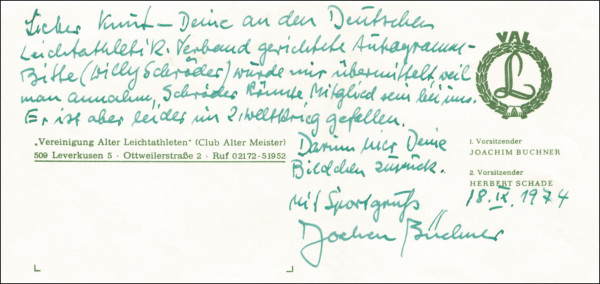 Lieber Knut – Deine an den Deutschen
Leichtathletik-Verband gerichtete Autogramm-
Bitte (Willy Schröder) wurde mir übermittelt weil
man annahm, Schröder könnte Mitglied sein bei uns.
Er ist aber leider im 2. Weltkrieg gefallen.
Darum hier Deine
Bildchen zurück.
Mit Sportgruß
Jochen Büchner
VAL
L
„Vereinigung Alter Leichtathleten" (Club Alter Meister)
509 Leverkusen 5 · Ottweilerstraße 2 · Ruf 02172 - 51952
1. Vorsitzender
JOACHIM BÜCHNER
2. Vorsitzender
HERBERT SCHADE
18. IX. 1974